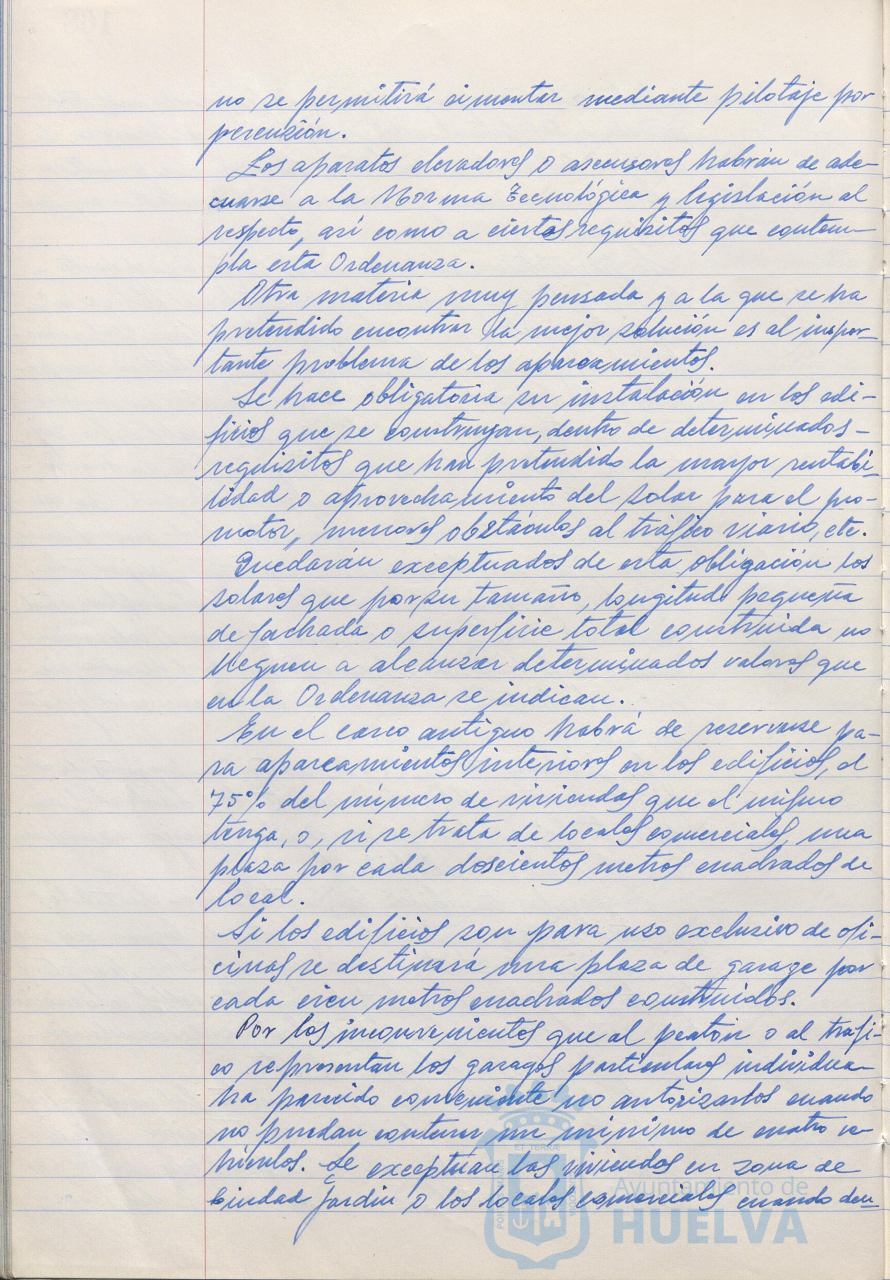 no se permitirá cimentar mediante pilotaje por
percusión.
Los aparatos elevadores o ascensores habrán de ade-
cuarse a la Norma Tecnológica y legislación al
respecto, así como a ciertos requisitos que contem-
pla esta Ordenanza.
Otra materia muy pensada y a la que se ha
pretendido encontrar la mejor solución es al impor-
tante problema de los aparcamientos.
Se hace obligatoria su instalación en los edi-
ficios que se construyan, dentro de determinados-
requisitos que han pretendido la mayor rentabi-
lidad o aprovechamiento del solar para el pro-
motor, menores obstáculos al tráfico viario, etc.
Quedarán exceptuados de esta obligación los
solares que por su tamaño, longitud pequeña
de fachada o superficie total construida no
lleguen a alcanzar determinados valores que
en la Ordenanza se indican.
En el casco antiguo habrá de reservarse pa-
ra aparcamientos interiores en los edificios, el
75% del número de viviendas que el mismo
tenga, o, si se trata de locales comerciales, una
plaza por cada doscientos metros cuadrados de
local.
Si los edificios son para uso exclusivo de ofi-
cinas se destinará una plaza de garage por
cada cien metros cuadrados construidos.
Por los inconvenientes que al peatón o al tráfi-
co representan los garages particulares individua-
ha parecido conveniente no autorizarlos cuando
no puedan contener un mínimo de cuatro ve-
hículos. Se exceptúan las viviendas en zona de
Ciudad Jardín o los locales comerciales cuando den-
Ayuntamiento de
HUELVA